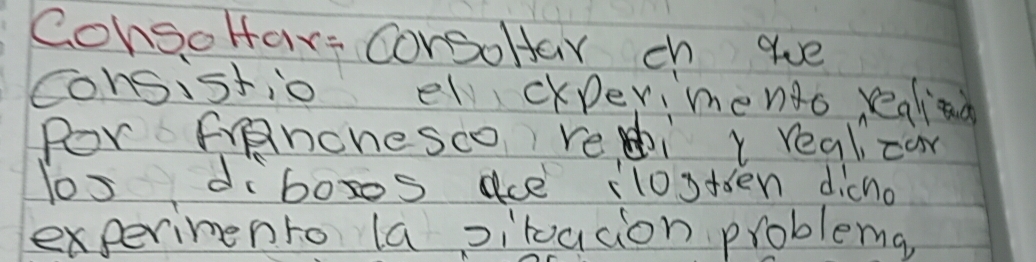 Consoltar= consoltar en que
consistio el experimento realizado
por franchesco redi y realizar
los diboxos que ilostren dicho
experimento la situacion problema,